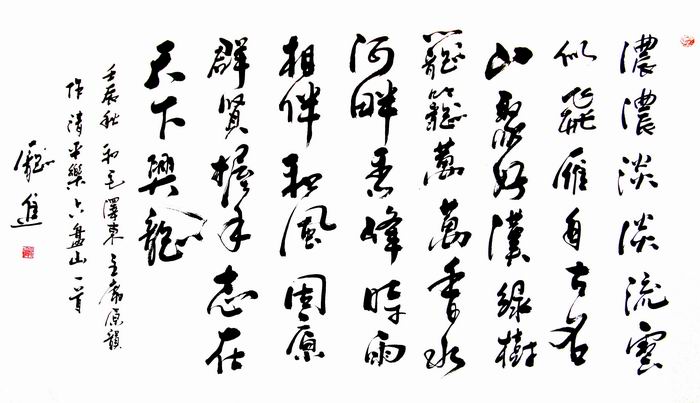 濃濃淡淡流雲
似飛雁自古名
山聚好漢綠樹
籠籠萬萬香水
河畔峰時雨
相伴和風固原
群賢握手志在
天下興龍
壬辰秋和毛澤東主席原韻
作清平樂六盤山一首
進